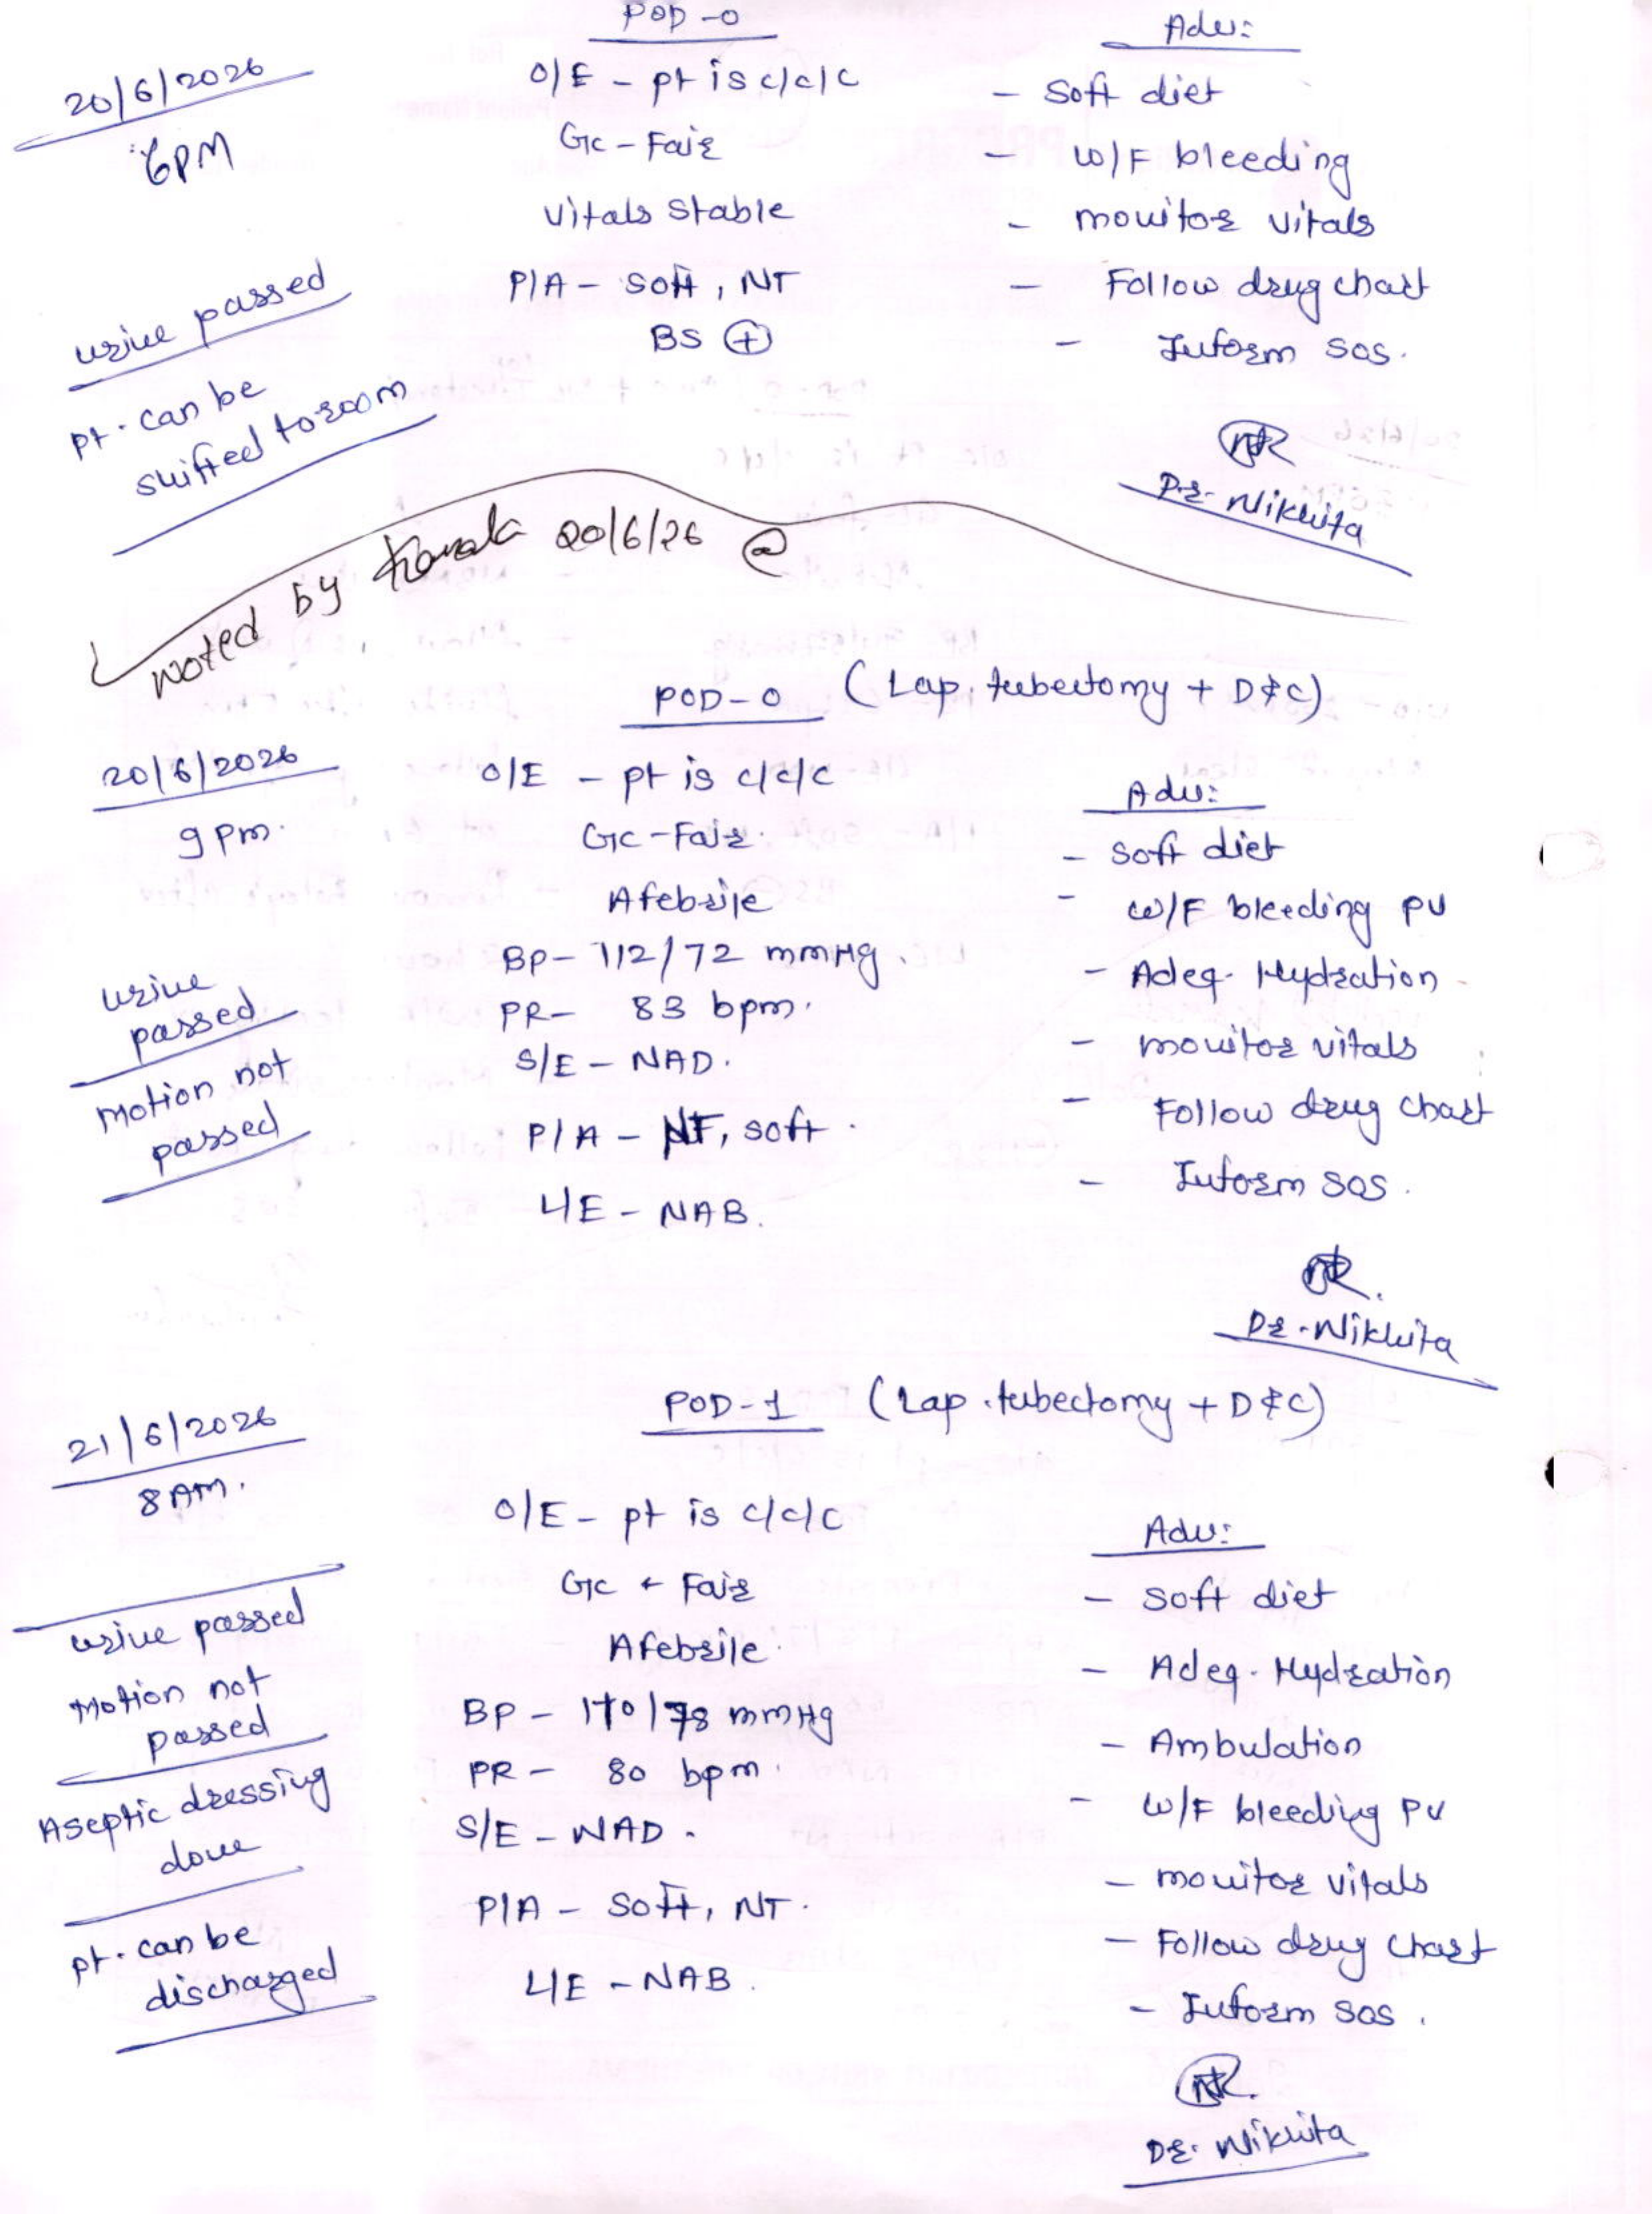 POD-0
20/6/2026
6PM
O/E - pt is c/c/c
GC - Fair
vitals stable
P/A - soft, NT
BS ⊕
urine passed
pt. can be
shifted to room
Adv:
- Soft diet
- W/F bleeding
- monitor vitals
- Follow drug chart
- Inform SOS.
Dr. Nikhita
Noted by 20/6/26 @
POD-0 (Lap. tubectomy + D&C)
20/6/2026
9 pm.
O/E - pt is c/c/c
GC - Fair.
Afebrile
BP - 112/72 mmHg.
PR - 83 bpm.
S/E - NAD.
P/A - soft.
L/E - NAB.
urine
passed
Motion not
passed
Adv:
- soft diet
- W/F bleeding PV
- Adeq. Hydration
- monitor vitals
- Follow drug chart
- Inform SOS.
Dr. Nikhita
POD-1 (Lap. tubectomy + D&C)
21/6/2026
8 AM.
O/E - pt is c/c/c
GC - Fair
Afebrile.
BP - mmHg
PR - 80 bpm.
S/E - NAD.
P/A - Soft, NT.
L/E - NAB.
urine passed
Motion not
passed
Aseptic dressing
done
pt. can be
discharged
Adv:
- Soft diet
- Adeq. Hydration
- Ambulation
- W/F bleeding PV
- monitor vitals
- Follow drug chart
- Inform SOS.
Dr. Nikhita